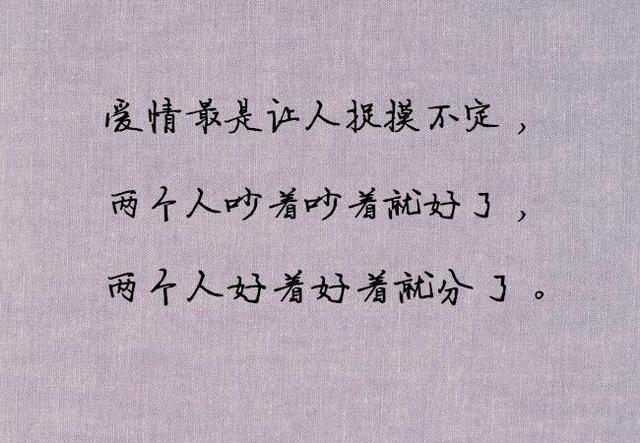 爱情最是让人捉摸不定，
两个人吵着吵着就好了，
两个人好着好着就分了。